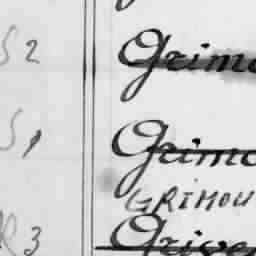 S2 Grimo
S1 Grimo
GRIMOU
R3 Grive